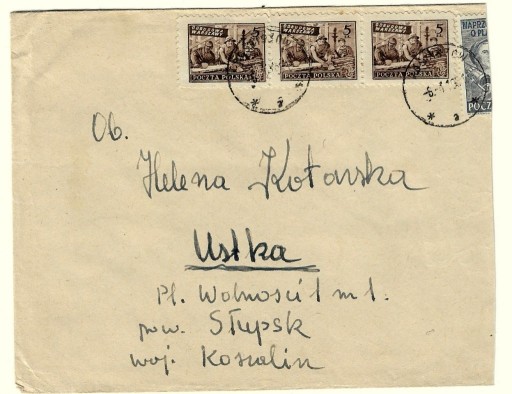 5 5 5
POCZTA POLSKA POCZTA POLSKA POCZTA POLSKA
NAPRZ
O PL
POCZ
Ob.
Helena Kotarska
Ustka
Pl. Wolności 1 m 1.
pow. Słupsk
woj. Koszalin